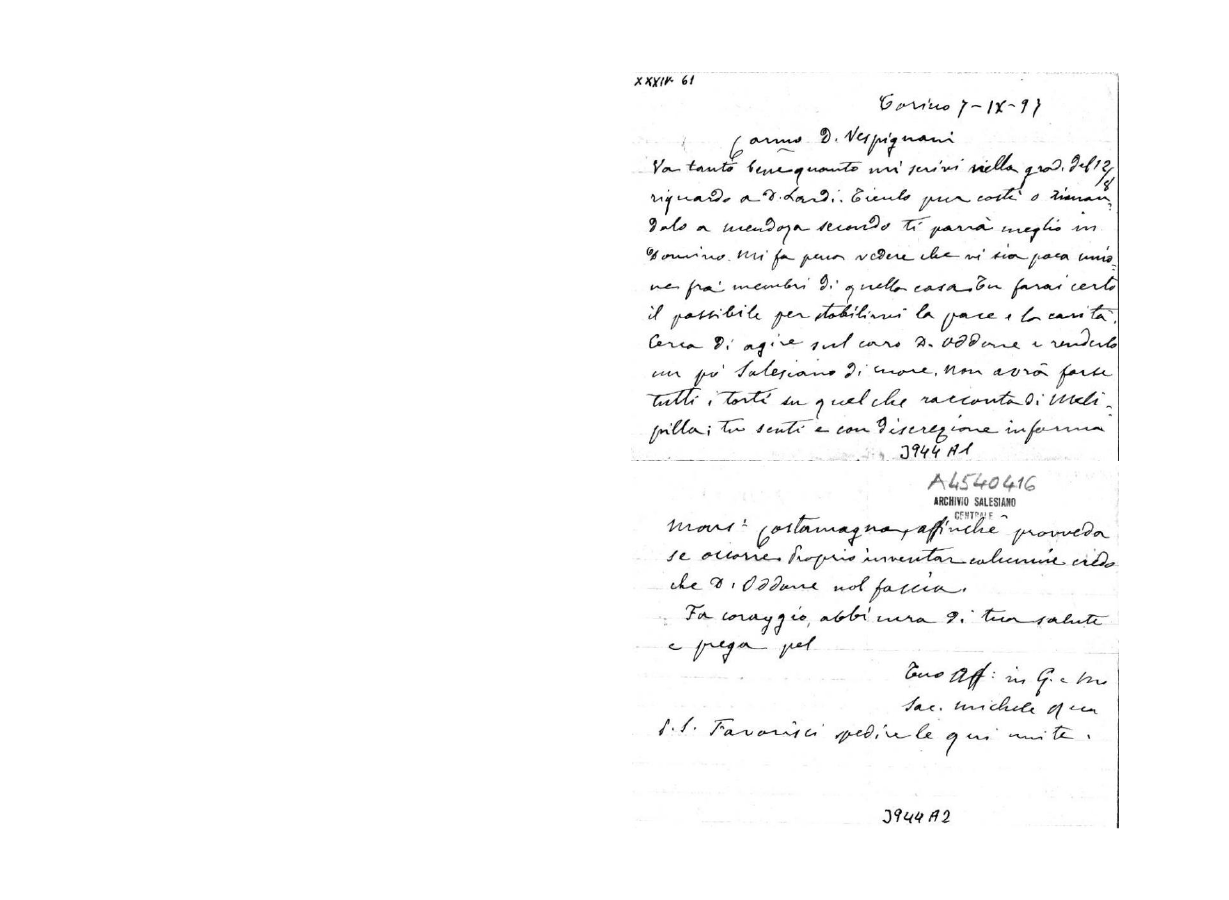 XXXIV- 61
Torino 7-IX-97
Carmo D. Vespignani
Va tanto bene quanto mi scrivi nella grad. del 12/8
riguardo a D. Lardi. Tienlo pur costì o riman-
dalo a Mendoza secondo ti parrà meglio in
Domino. Mi fa pena vedere che vi sia poca unio-
ne fra' membri di quella casa. Tu farai certo
il possibile per stabilirvi la pace e la carità.
Cerca di agire sul caro D. Oddone e renderlo
un po' Salesiano di cuore. Non avrà forse
tutti i torti su quel che racconta di Meli-
pilla; tu senti e con discrezione informa
J944 A1
A4540416
ARCHIVIO SALESIANO
CENTRALE
Monsr Costamagna, affinchè provveda
se occorre. Proprio inventar calunnie credo
che D. Oddone nol faccia.
Fa coraggio, abbi cura di tua salute
e prega pel
Tuo Aff: in G. e M.
Sac. Michele Rua
P.S. Favorisci spedire le qui unite.
J944 A2